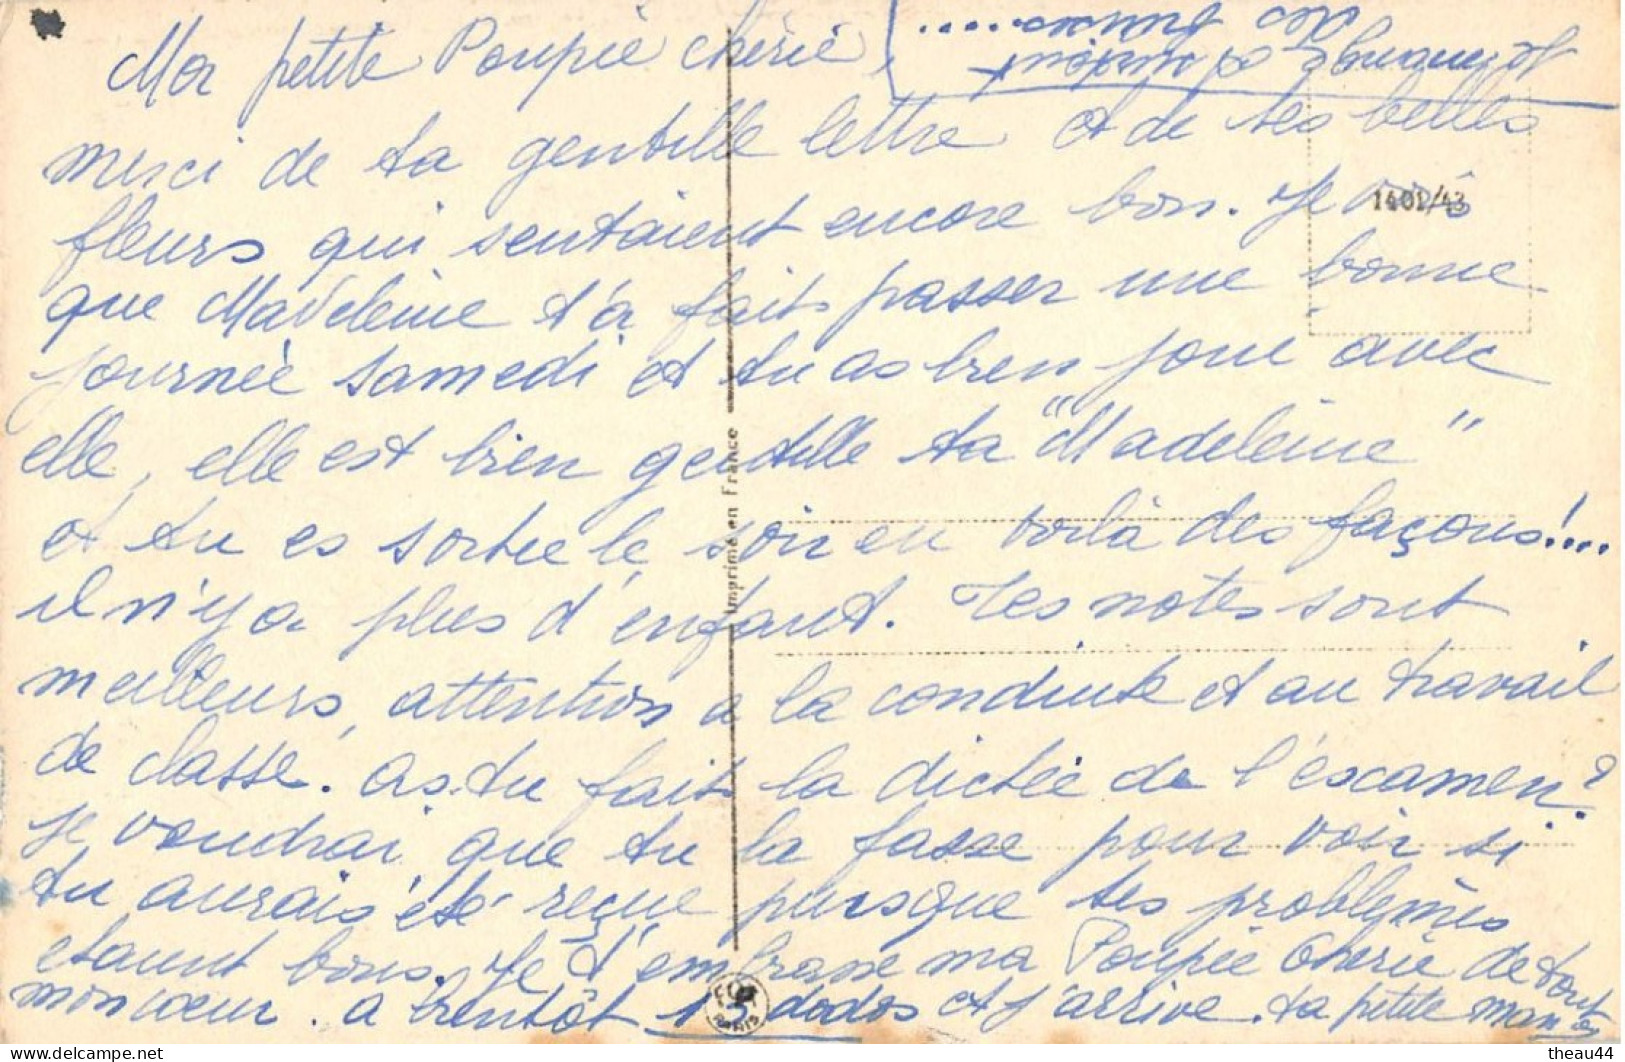 Ma petite Poupée chérie,
merci de ta gentille lettre et de tes belles
fleurs qui sentaient encore bon. Je vois
que Madeleine t'a fait passer une bonne
journée samedi et tu as bien joué avec
elle, elle est bien gentille ta "Madeleine"
et tu es sortie le soir en voilà des façons!....
il n'y a plus d'enfant. Tes notes sont
meilleurs, attention a la conduite et au travail
de classe. As-tu fait la dictée de l'éxamen?
je voudrai que tu la fasse pour voir si
tu aurais été reçue puisque tes problèmes
etaient bons. Je t'embrasse ma Poupée chérie de tout
mon coeur. a bientôt 13 dodos et j'arrive. ta petite maman
des Puces.....
1401/43
Imprimé en France
PARIS
theau44